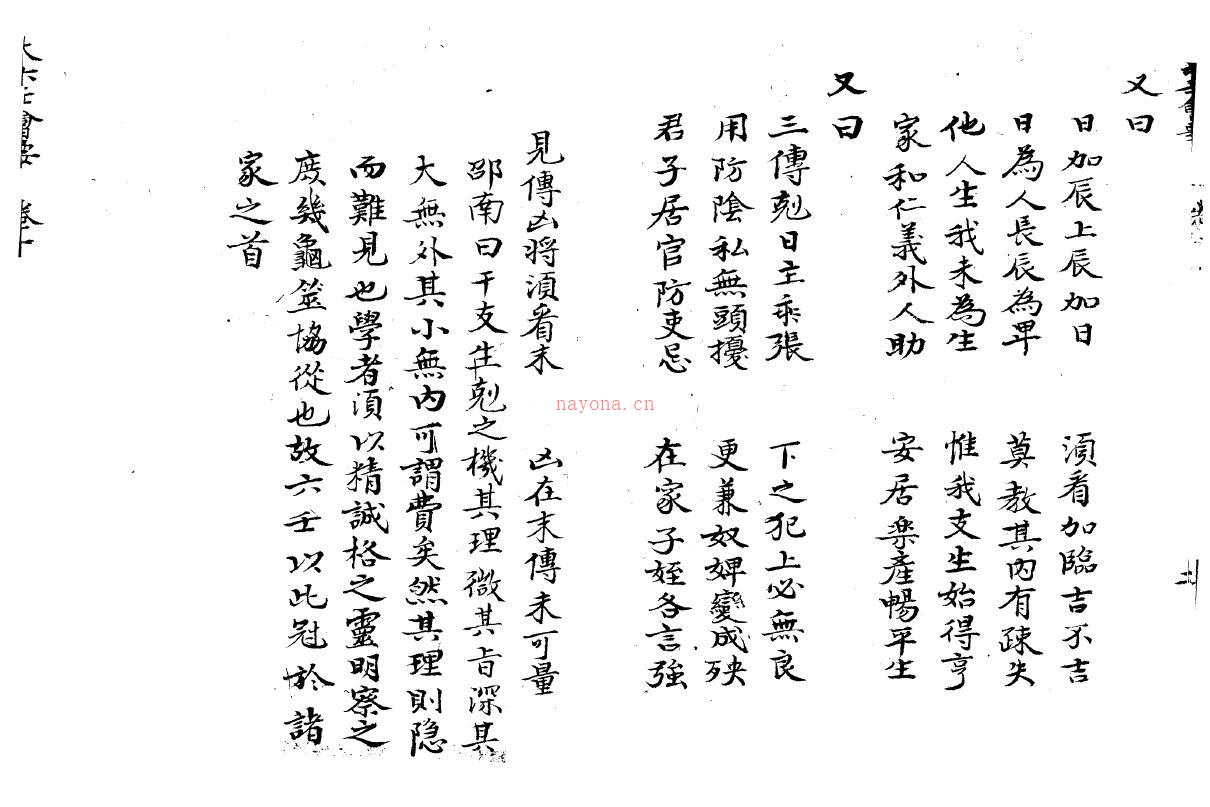 又曰
日加辰上辰加日 須看加臨吉不吉
日為人長辰為卑 莫教其內有疎失
他人生我未為生 惟我支生始得亨
家和仁義外人助 安居樂產暢平生
又曰
三傳剋日主乖張 下之犯上必無良
用防陰私無頭擾 更兼奴婢變成殃
君子居官防吏忌 在家子姪各言強
見傳凶將須看末 凶在末傳未可量
邵南曰干支生剋之機其理微其旨深其
大無外其小無內可謂費矣然其理則隐
而難見也學者須以精誠格之靈明察之
庶幾龜筮協從也故六壬以此冠於諸
家之首
大六壬會要 卷十
nayona.cn